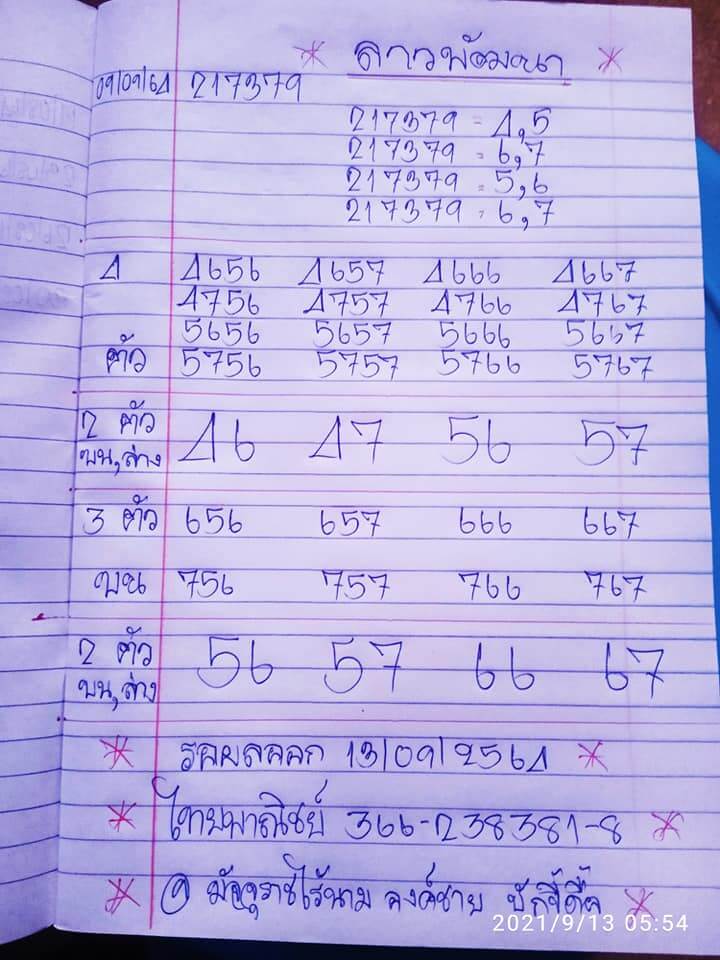 * ลาวพัฒนา *
09/09/64 217379
217379 = 4,5
217379 = 6,7
217379 = 5,6
217379 = 6,7
4 4656 4657 4666 4667
4756 4757 4766 4767
5656 5657 5666 5667
ตัว 5756 5757 5766 5767
2 ตัว
บน,ล่าง 46 47 56 57
3 ตัว 656 657 666 667
บน 756 757 766 767
2 ตัว
บน,ล่าง 56 57 66 67
* รอผลออก 13/09/2564 *
* ไทยพาณิชย์ 366-238381-8 *
* มัจจุราชไร้นาม องค์ชาย *
2021/9/13 05:54